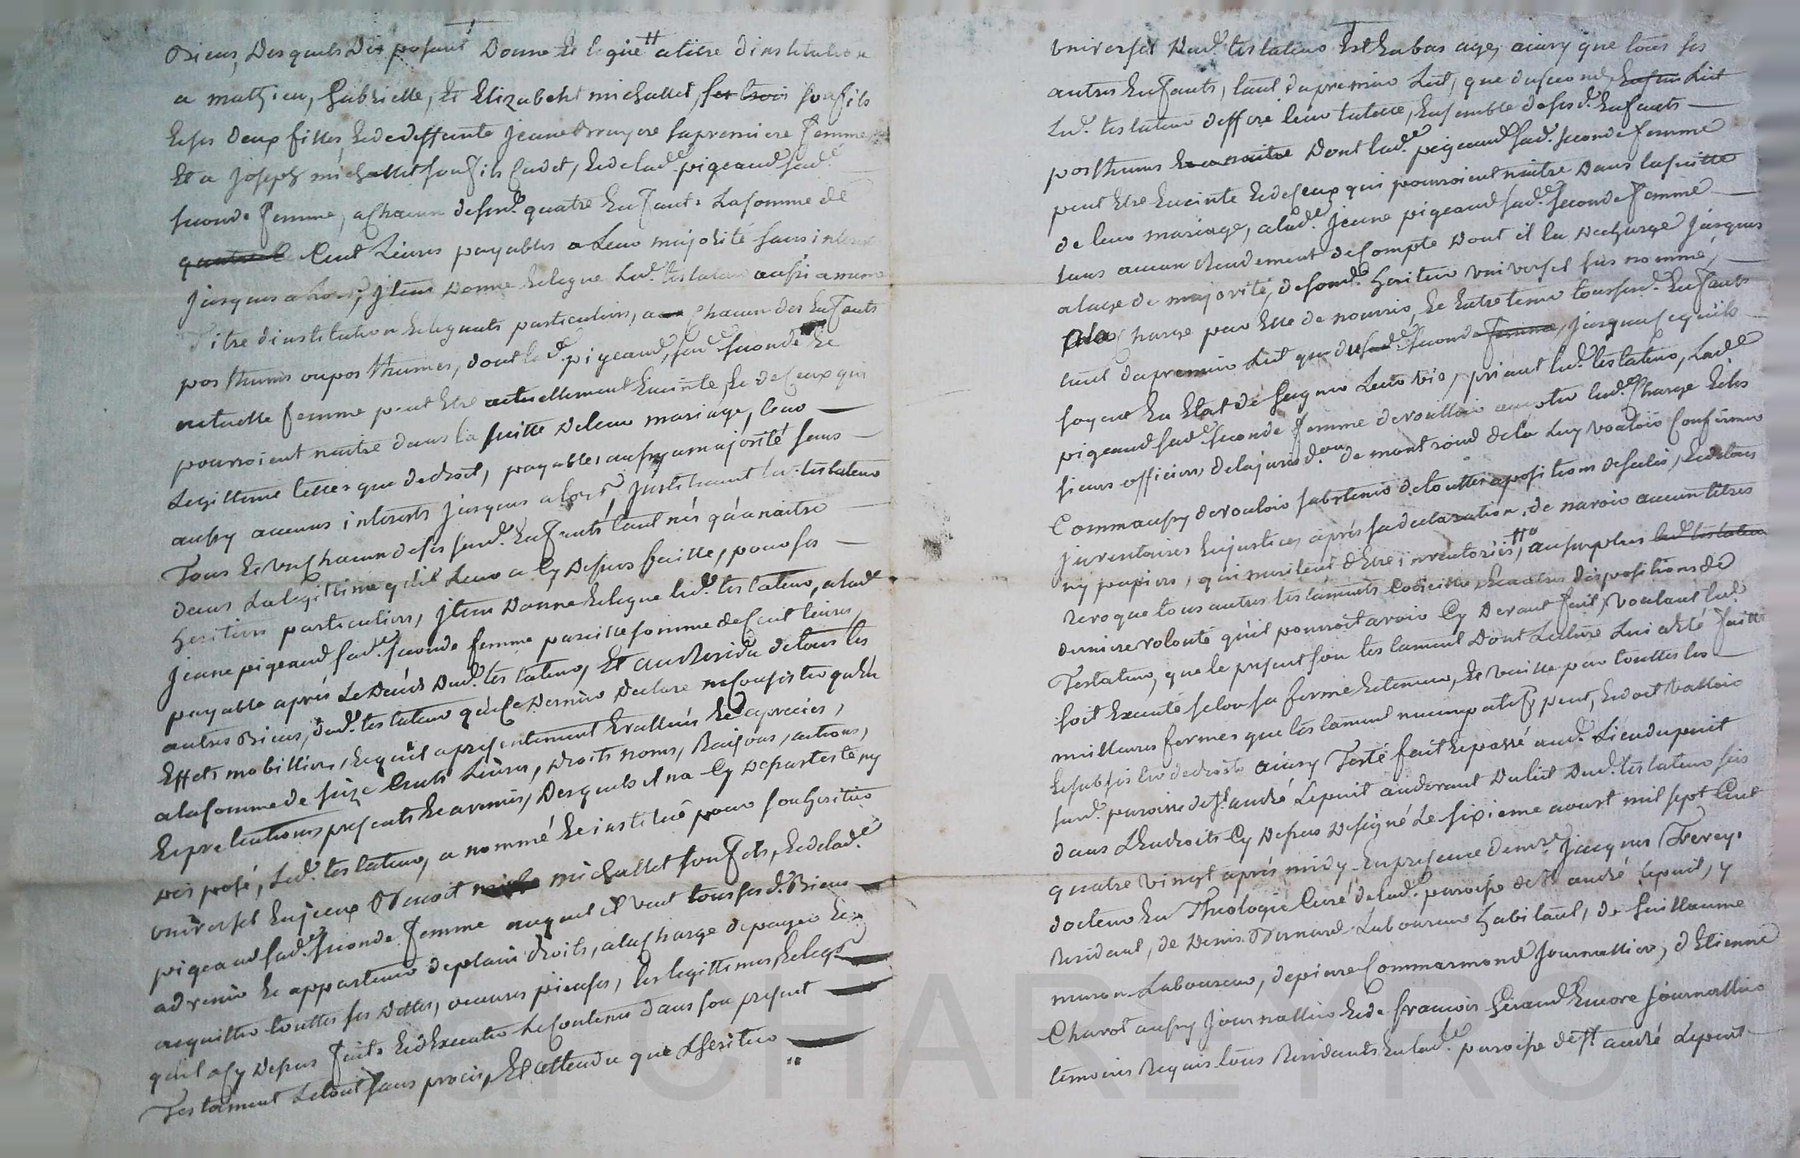 Biens, Desquels Disposant Donne Et legue a titre d'institution
a mathieu, Gabrielle, Et Elizabeht michallet, ses trois son fils
Et ses deux filles, Et de deffunte jeane Bruyere sa premiere femme
Et a joseph michallet son fils Cadet, Et de lad.e pigeaud sad.e
seconde femme, a Chacun desusd. quatre Enfants La somme de
Cent Livres payables a Leur majorité sans interest
jusques alors, jtem Donne Et legue Led. testateur aussi a meme
Titre d'institution Et leguats particuliers, a Chacun des Enfants
posthumes ou posthumes, dont lad.e pigeaud, sad. seconde Et
actuelle femme peut Etre actuellement Enceinte, Et de Ceux qui
pourroient naitre dans la suitte De leur mariage, leur
Legittime telle que de droit, payables aussy a majorité sans
aussy aucuns interests jusques alors, jnstituant led. testateur
Tous Et un Chacun de ses susd. Enfants tant nés qu'a naitre
dans La legittime qu'il Leur a Cy Dessus faitte, pour ses
heritiers particuliers, jtem Donne Et legue led. testateur, a lad.
jeane pigeaud sad. seconde femme pareille somme de Cent livres,
payable aprés Le Deces Dud. testateur, Et au Residu de tous les
autres Biens, dud. testateur que Ce Dernier Declare ne Consister qu'En
Effets mobilliers, Et qu'il a presentement Evallués Et apreciés,
a la somme de seize Cents Livres, droits noms, Raisons, actions,
Et pretentions presents Et avenir, Desquels il n'a Cy Devant testé ny
Disposé, Led. testateur, a nommé Et institué pour son heritier
universel Enjceux Benoit michallet son fils, Et de lad.e
pigeaud sad. seconde femme auquel il veut tous sesd. Biens
advenir Et appartenir de plain droits, a la Charge de payer Et
acquitter touttes ses Dettes, oeuvres pieuses, les legittimes, Et legs
qu'il a Cy Dessus faits Et d'Executer Le Contenu dans son present
Testament Le tout sans procés, Et attendu que L'heritier
universel Dud. testateur Est En bas age, ainsy que tous ses
autres Enfants, tant du premier Lit, que du second,
Led. testateur deffere leur tutelle, Ensemble de sesd. Enfants
posthumes Dont lad.e pigeaud sad. seconde femme
peut Etre Enceinte Et de Ceux qui pourroient naitre Dans la suitte
de leur mariage, a lad.e jeane pigeaud sad.e seconde femme
sans aucun Rendement de Compte Dont il la Decharge jusques
a l'age de majorité, de sond. heritier universel sus nommé,
a la Charge par Elle de nourrir, Et Entretenir tous sesd. Enfants
tant du premier Lit que du second, jusques a Ce qu'ils
soyent En Etat de gagner Leur vie, priant led. testateur, Lad.e
pigeaud sad.e seconde femme de voulloir accepter lad.e Charge Et les
sieurs officiers de la jurisd.on de montrond de la Luy vouloir Confirmer
Comm'aussy de vouloir s'abstenir de touttes apositions de scelés, Et de tous
jnventaires En justice, aprés sa declaration, de n'avoir aucun titres
ny papiers, qui meritent d'Etre jnventoriés, au surplus led. testateur
Revoque tous autres testaments Codicilles Et autres dispositions de
derniere volonté qu'il pourroit avoir Cy Devant fait, voulant led.
Testateur, que le present son testament Dont Lecture Lui a Eté faitte
soit Executé selon sa forme Et teneur, Et vaille par touttes les
meilleures formes que testament nuncupatif, peut, Et doit valloir
Et subsister de droits ainsy Testé fait Et passé aud. Lieu du puit
susd. paroisse de st andré Lepuit audevant Du lit Dud. testateur sis
dans L'Endroits Cy Dessus Designé Le sixieme aoust mil sept Cent
quatre vingt aprés midy. En presence de m.re jacques Trevey.
docteur En Theologie Curé de lad. paroisse de st andré lepuit, y
Residant, de Denis Bernard Laboureur habitant, de Guillaume
Laboureur, de pierre Commarmond journallier, d'Etienne
Charot aussy journallier Et de francois Geraud Encore journallier
temoins Requis tous Residants En lad.e paroisse de st andré Lepuit
CHAREYRON